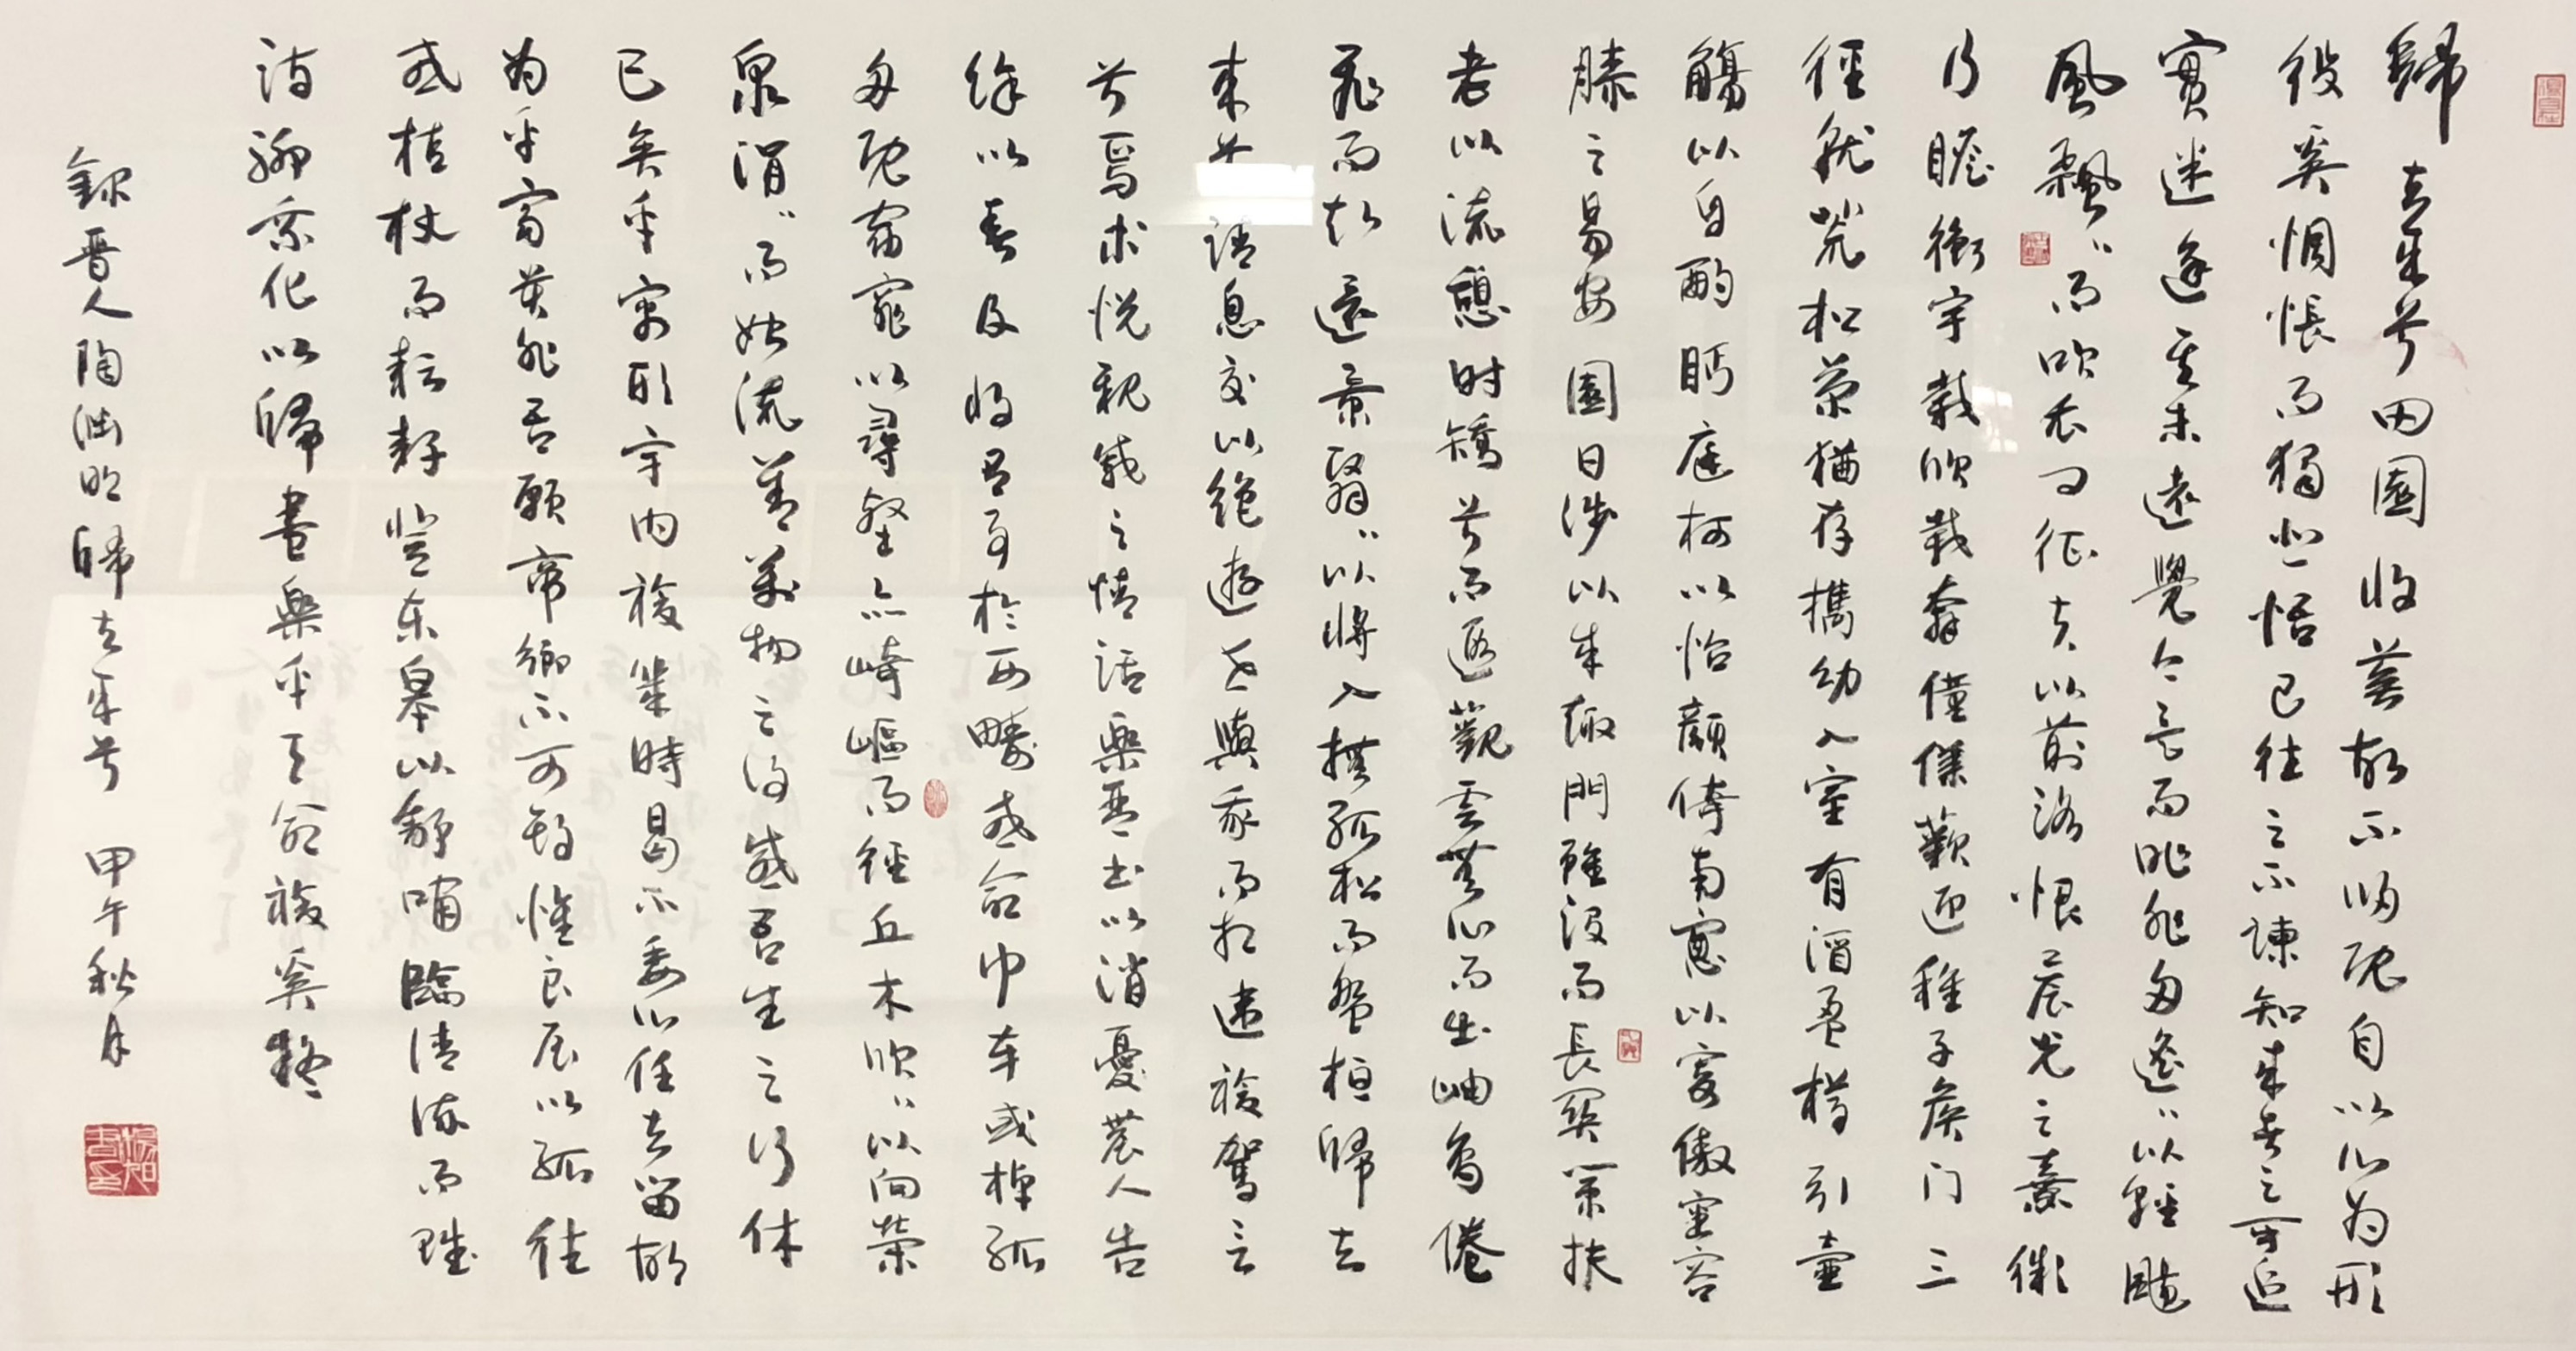 歸去来兮田園收蕪故不歸既自以心为形
役奚惆悵而獨悲悟已往之不諫知来者之可追
實迷途其未遠覺今是而昨非舟遙〻以輕颺
風飄〻而吹衣问征夫以前路恨晨光之熹微
乃瞻衡宇載欣載奔僮僕歡迎稚子候门三
徑就荒松菊猶存攜幼入室有酒盈樽引壺
觴以自酌眄庭柯以怡顏倚南窗以寄傲審容
膝之易安園日涉以成趣門雖設而長關策扶
老以流憩时矯首而遐觀雲無心而出岫鳥倦
飛而知還景翳〻以將入撫孤松而盤桓歸去
来兮請息交以绝遊世與我而相違複駕言
兮焉求悦親戚之情話樂琴书以消憂農人告
餘以春及将有事於西疇或命巾车或棹孤
舟既窈窕以尋壑亦崎嶇而經丘木欣〻以向榮
泉涓〻而始流善萬物之得時感吾生之行休
已矣乎寓形宇内複幾時曷不委心任去留胡
为乎富貴非吾願帝鄉不可期懷良辰以孤往
或植杖而耘耔登东皋以舒嘯臨清流而賦
诗聊乘化以歸盡樂乎天命複奚疑
錄晋人陶淵明歸去来兮 甲午秋月